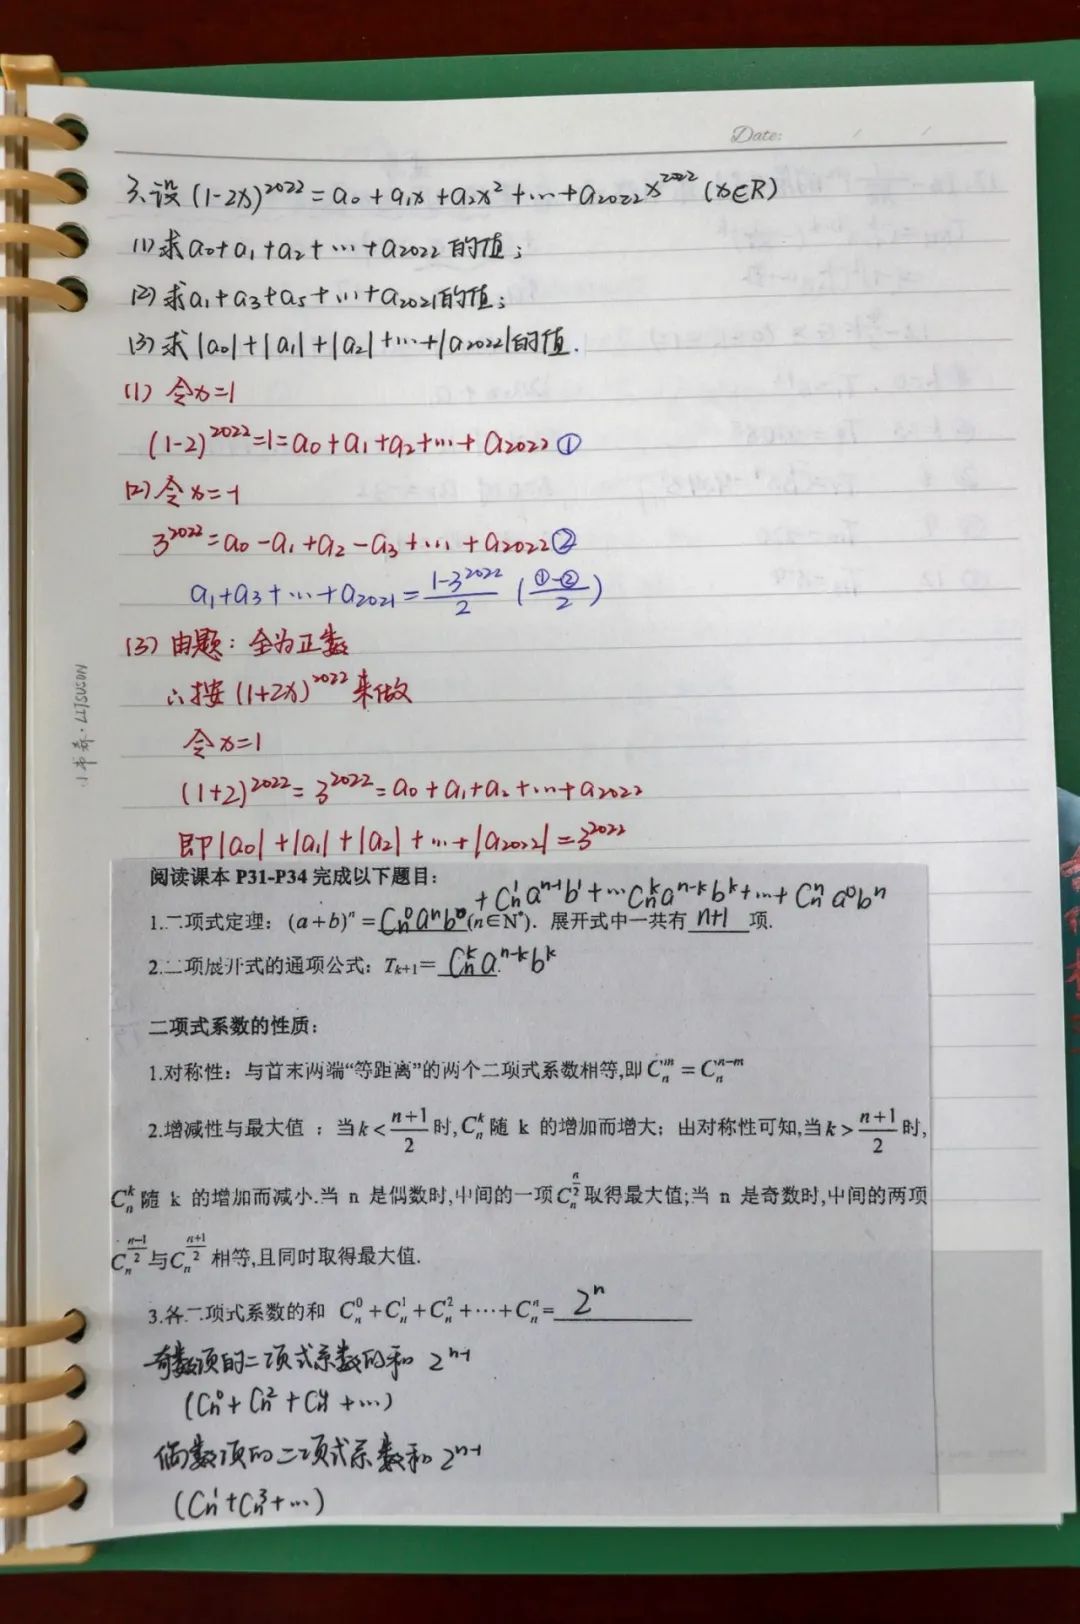 Date: / /
3.设 (1-2x)²⁰²² = a₀ + a₁x + a₂x² + … + a₂₀₂₂x²⁰²² (x∈R)
(1) 求a₀+a₁+a₂+…+a₂₀₂₂的值;
(2) 求a₁+a₃+a₅+…+a₂₀₂₁的值;
(3) 求|a₀|+|a₁|+|a₂|+…+|a₂₀₂₂|的值.
(1) 令x=1
(1-2)²⁰²²=1=a₀+a₁+a₂+…+a₂₀₂₂ ①
(2) 令x=-1
3²⁰²²=a₀-a₁+a₂-a₃+…+a₂₀₂₂ ②
a₁+a₃+…+a₂₀₂₁=(1-3²⁰²²)/2 ((①-②)/2)
(3) 由题: 全为正数
∴按 (1+2x)²⁰²² 来做
令x=1
(1+2)²⁰²²=3²⁰²²=a₀+a₁+a₂+…+a₂₀₂₂
即|a₀|+|a₁|+|a₂|+…+|a₂₀₂₂|=3²⁰²²
小书森·LIJSUSON
阅读课本 P31-P34 完成以下题目:
+ Cₙ¹aⁿ⁻¹b¹ + …Cₙᵏaⁿ⁻ᵏbᵏ+…+ Cₙⁿa⁰bⁿ
1.二项式定理: (a+b)ⁿ = Cₙ⁰aⁿb⁰ (n∈N*). 展开式中一共有 n+1 项.
2.二项展开式的通项公式: Tₖ₊₁= Cₙᵏaⁿ⁻ᵏbᵏ
二项式系数的性质:
1.对称性: 与首末两端“等距离”的两个二项式系数相等,即 Cₙᵐ = Cₙⁿ⁻ᵐ
2.增减性与最大值 : 当k<(n+1)/2时,Cₙᵏ随 k 的增加而增大; 由对称性可知,当k>(n+1)/2时,
Cₙᵏ随 k 的增加而减小.当 n 是偶数时,中间的一项Cₙ^(n/2)取得最大值;当 n 是奇数时,中间的两项
Cₙ^((n-1)/2)与Cₙ^((n+1)/2)相等,且同时取得最大值.
3.各二项式系数的和 Cₙ⁰+Cₙ¹+Cₙ²+⋯+Cₙⁿ= 2ⁿ
奇数项的二项式系数的和 2ⁿ⁻¹
(Cₙ⁰+Cₙ²+Cₙ⁴+…)
偶数项的二项式系数和 2ⁿ⁻¹
(Cₙ¹+Cₙ³+…)